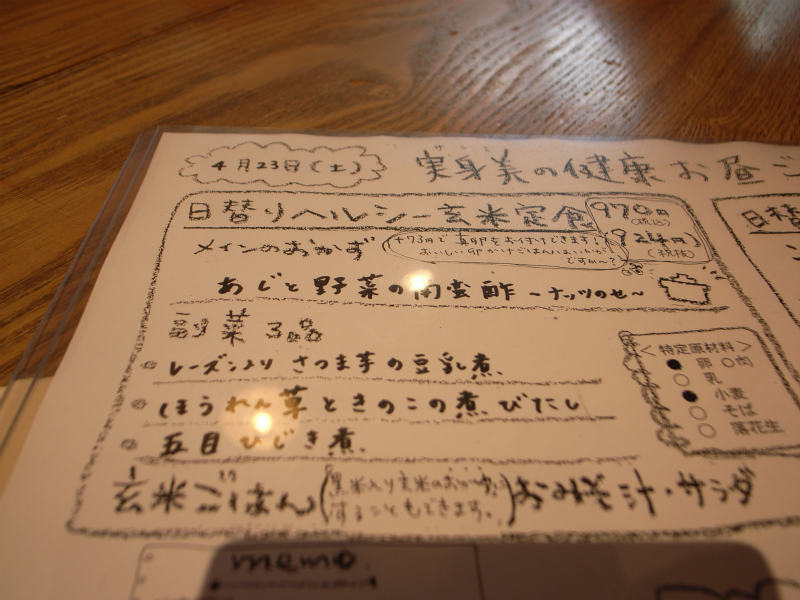 4月23日(土)
実身美の健康お昼ご
日替りヘルシー玄米定食 970円(税込)
924円(税抜)
メインのおかず
+73円で真卵をお付けできます!
おいしい卵かけごはんはいかがですか~?
あじと野菜の南蛮酢 ~ナッツのせ~
副菜3品
レーズン入り さつま芋の豆乳煮
ほうれん草ときのこの煮びたし
五目ひじき煮
玄米ごはん(黒米入り玄米のおかゆにすることもできます。)おみそ汁・サラダ
<特定原材料>
● 卵 ○肉
○ 乳
● 小麦
○ そば
○ 落花生
日替
memo